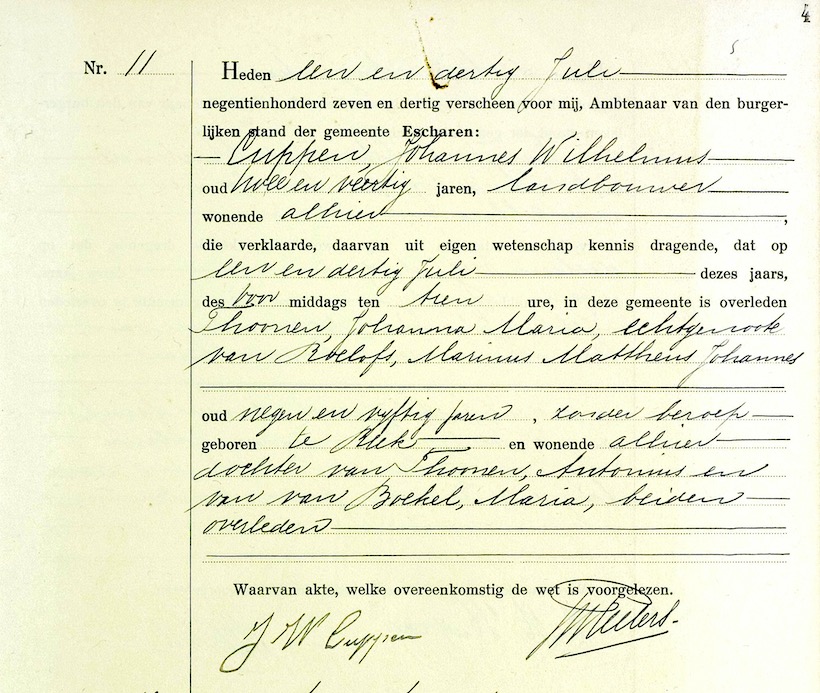 4
5
Nr. 11
Heden een en dertig Juli
negentienhonderd zeven en dertig verscheen voor mij, Ambtenaar van den burger-
lijken stand der gemeente Escharen:
Cuppen, Johannes Wilhelmus
oud twee en veertig jaren, landbouwer
wonende alhier,
die verklaarde, daarvan uit eigen wetenschap kennis dragende, dat op
een en dertig Juli dezes jaars,
des voor middags ten tien ure, in deze gemeente is overleden
Thoonen, Johanna Maria, echtgenoote
van Roelofs, Marinus Mattheus Johannes
oud negen en vyftig jaren, zonder beroep
geboren te Reek en wonende alhier
dochter van Thoonen, Antonius en
van van Boekel, Maria, beiden
overleden
Waarvan akte, welke overeenkomstig de wet is voorgelezen.
J W Cuppen